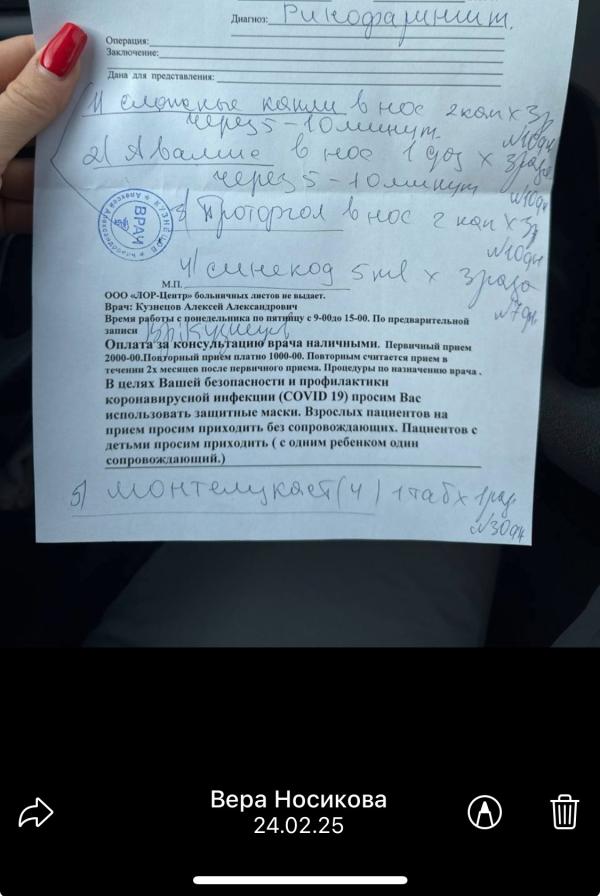 Диагноз: Ринофарингит.
Операция:
Заключение:
Дата для представления:
1) сложные капли в нос 2 кап х 3р
через 5-10 минут №10дн
2) Авамис в нос 1 доз х 3 раза
через 5-10 минут №10дн
3) Проторгол в нос 2 кап х 3р
№10дн
4) синекод 5 ml х 3 раза
№7дн
ВРАЧ
КУЗНЕЦОВ
М.П.
ООО «ЛОР-Центр» больничных листов не выдает.
Врач: Кузнецов Алексей Александрович
Время работы с понедельника по пятницу с 9-00до 15-00. По предварительной
записи
Оплата за консультацию врача наличными. Первичный прием
2000-00.Повторный прием платно 1000-00. Повторным считается прием в
течении 2х месяцев после первичного приема. Процедуры по назначению врача .
В целях Вашей безопасности и профилактики
коронавирусной инфекции (COVID 19) просим Вас
использовать защитные маски. Взрослых пациентов на
прием просим приходить без сопровождающих. Пациентов с
детьми просим приходить ( с одним ребенком один
сопровождающий.)
5) Монтелукаст (4) 1 таб х 1 раз
№30дн
Вера Носикова
24.02.25